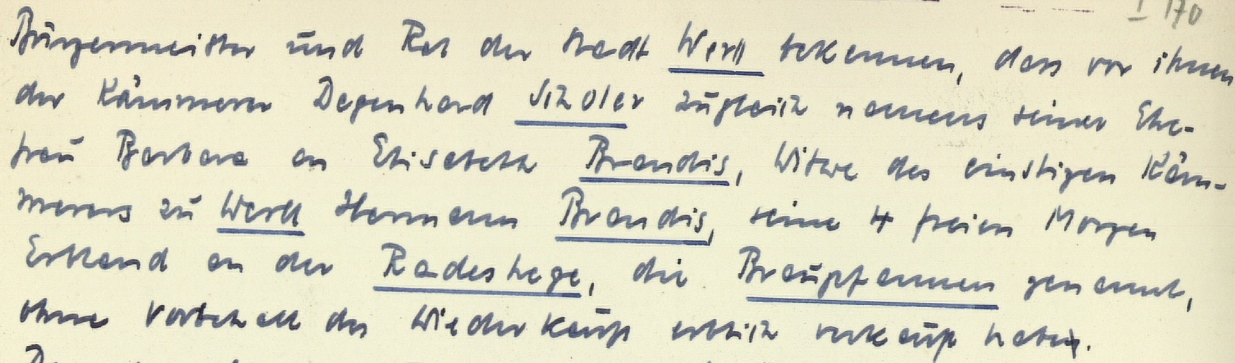 I 170
Bürgermeister und Rat der Stadt Werll bekennen, dass vor ihnen
der Kämmerer Degenhard Scholer zugleich namens seiner Ehe-
frau Barbara an Elisabeth Brandis, Witwe des einstigen Käm-
merers zu Werll Hermann Brandis, seine 4 freien Morgen
Erbland an der Radeshege, die Braupfannen genannt,
ohne Vorbehalt des Wiederkaufs erblich verkauft haben.